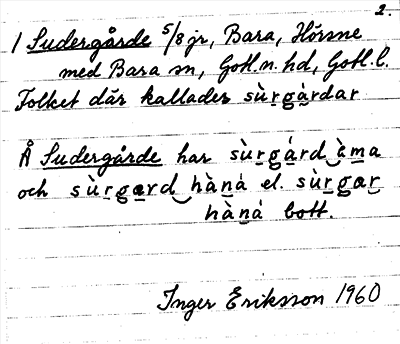 2.
/ Sudergårde 5/8 jr, Bara, Hörsne
med Bara sn, Gotl. n. hd, Gotl. l.
Folket där kallades sùrgàrdar
Å Sudergårde har sùrgárd‿àma
och sùrgard‿hàná el. sùrgar
hàná bott.
Inger Eriksson 1960